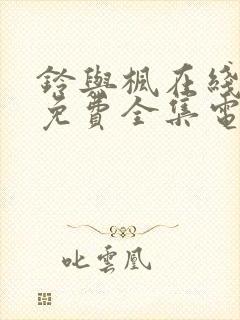 鈴與楓在綫
免費全集電
叱雲凰